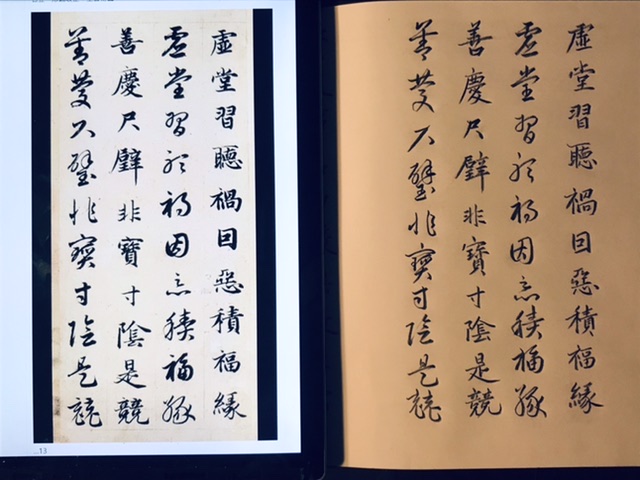 虛堂習聽禍因惡積福緣
虛堂習聽禍因惡積福緣
善慶尺璧非寶寸陰是競
善慶尺璧非寶寸陰是競
13
虛堂習聽禍因惡積福緣
虛堂習聽禍因惡積福緣
善慶尺璧非寶寸陰是競
善慶尺璧非寶寸陰是競